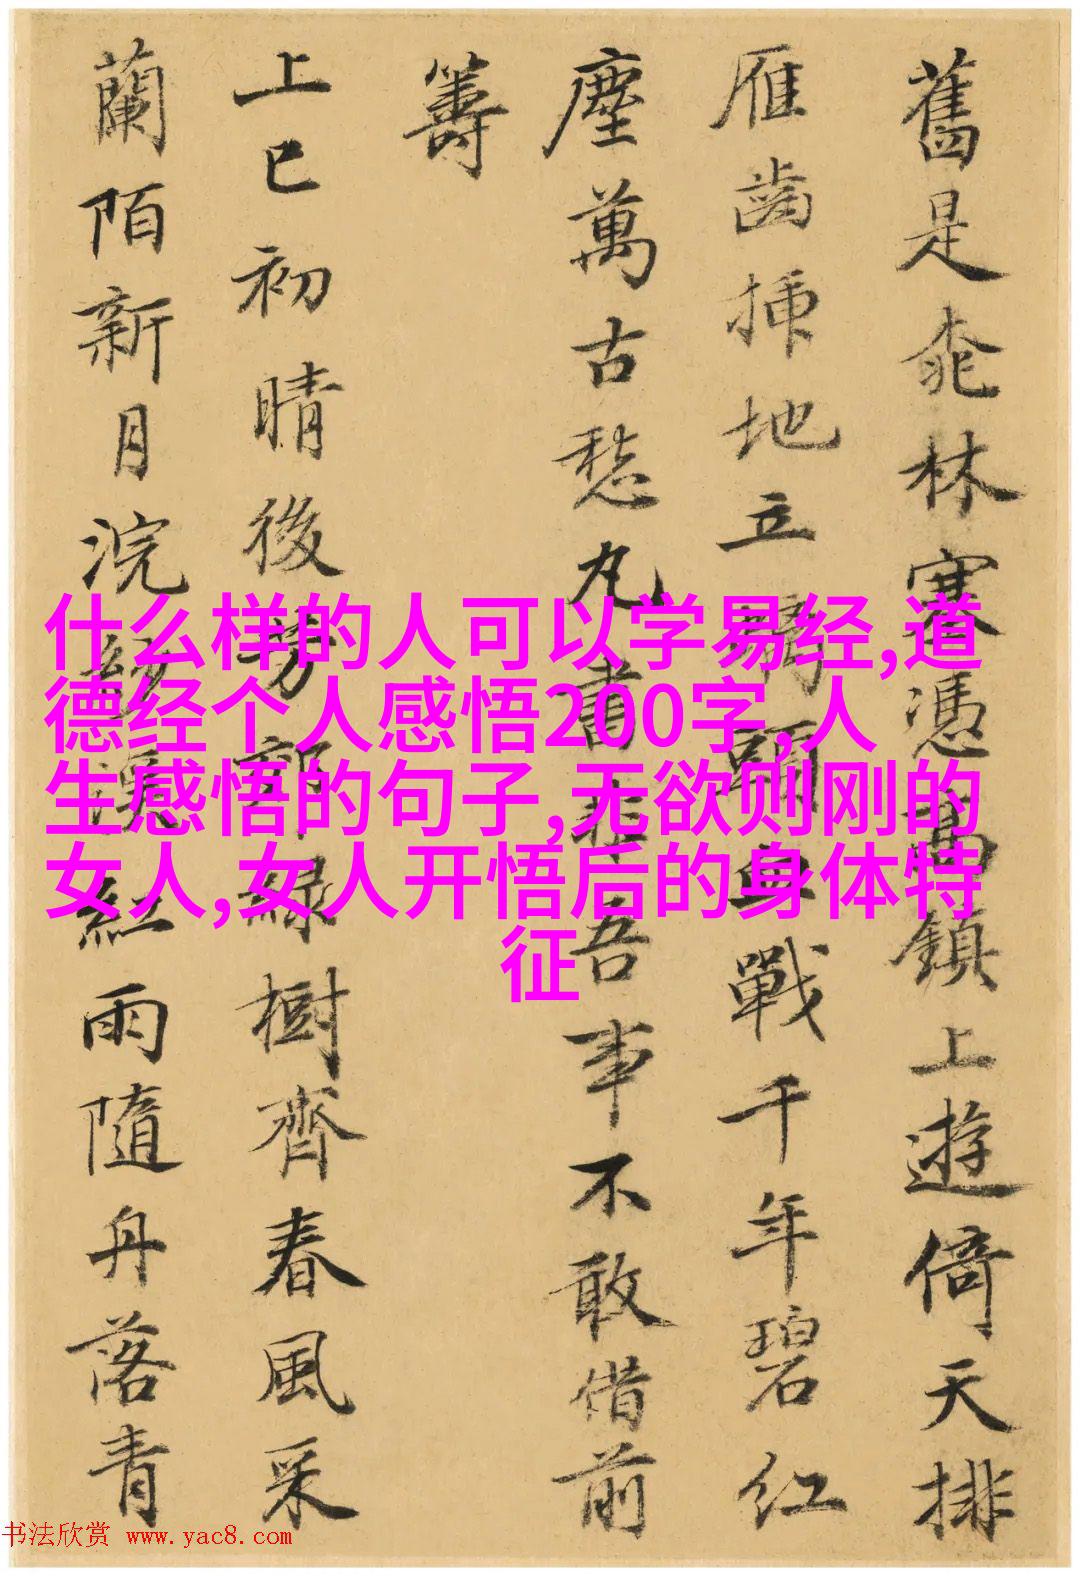 舊是桃林塞憑高鎮上遊倚天排
雁齒插地立螭頭血戰千年碧紅
塵萬古愁丸書非吾事不敢借前
籌
上巳初晴後旁郭綠樹齊春風采
蘭陌新月浣紗溪紅雨隨舟落青
什么样的人可以学易经,道
德经个人感悟200字,人
生感悟的句子,无欲则刚的
女人,女人开悟后的身体特
征
书法欣赏 www.yac8.com